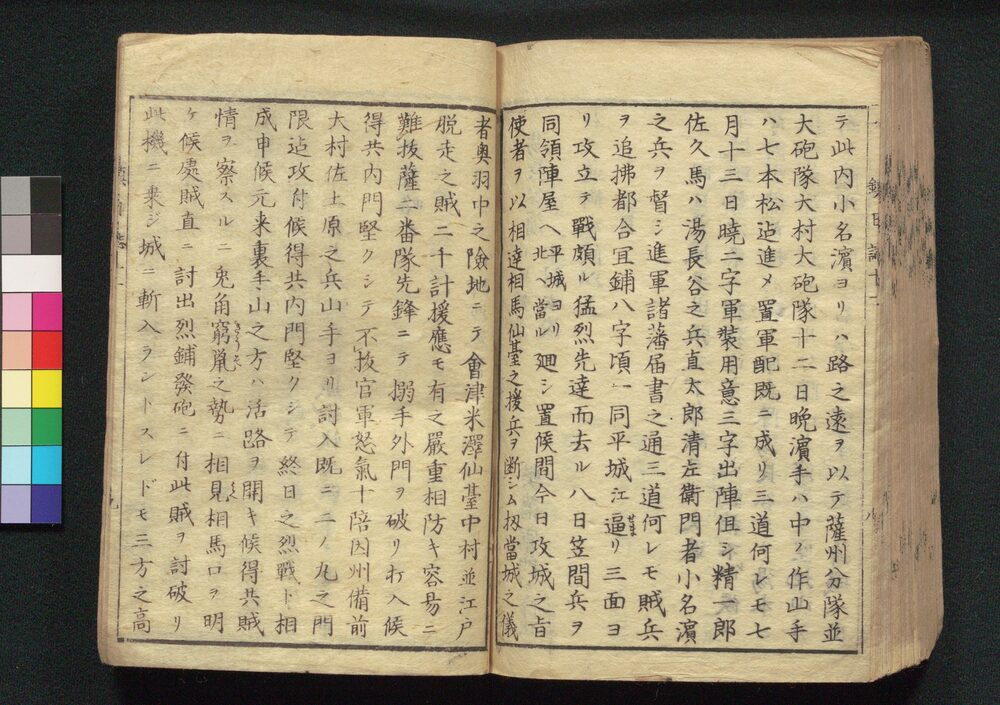 テ此内小名濱ヨリハ路之遠ヲ以テ薩州分隊並
大砲隊大村大砲隊十二日晩濱手ハ中ノ作山手
ハ七本松迠進メ置軍配既ニ成リ三道何レモ七
月十三日曉二字軍装用意三字出陣但シ精一郎
佐久馬ハ湯長谷之兵直太郎清左衛門者小名濱
之兵ヲ督シ進軍諸藩届書之通三道何レモ賊兵
ヲ追拂都合宜鋪八字頃一同平城江逼リ三面ヨ
せま
リ攻立テ戰頗ル猛烈先達而去ル八日笠間兵ヲ
同領陣屋ヘ平城ヨリ北ヘ當ル廻シ置候間今日攻城之旨
使者ヲ以相達相馬仙臺之援兵ヲ断シム扨當城之儀
者奥羽中之險地ニテ會津米澤仙臺中村並江戸
脱走之賊二千計援應モ有之嚴重相防キ容易ニ
難抜薩二番隊先鋒ニテ搦手外門ヲ破リ打入候
得共内門堅クシテ不抜官軍怒氣十陪因州備前
大村佐土原之兵山手ヨリ討入既ニ二ノ丸之門
限迠攻付候得共内門堅クシテ終日之烈戰ト相
成申候元来裏手山之方ハ活路ヲ開キ候得共賊
情ヲ察スルニ兎角窮鼠之勢ニ相見相馬口ヲ明
ケ候處賊直ニ討出烈鋪發砲ニ付此賊ヲ討破リ
此機ニ乗ジ城ニ斬入ラントスレドモ三方之高